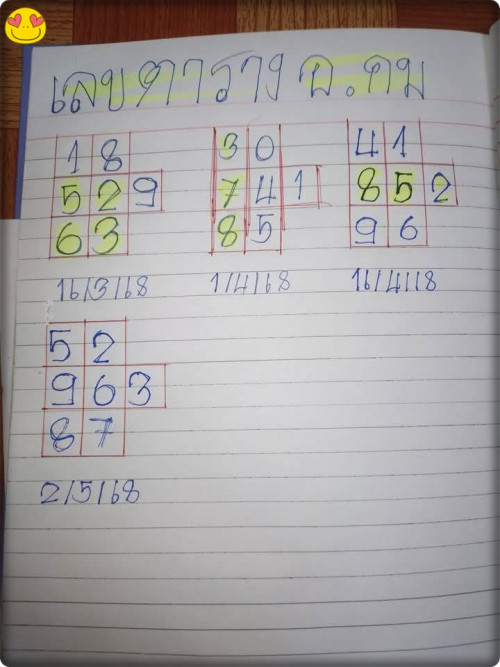 เลขตาราง อ.คม
18
529
63
16/3/68
30
741
85
1/4/68
41
852
96
16/4/18
52
963
87
2/5/68